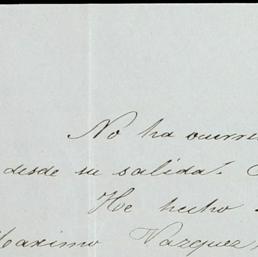 No ha ocurri
desde su salida.
He hecho
Maximo Vazquez